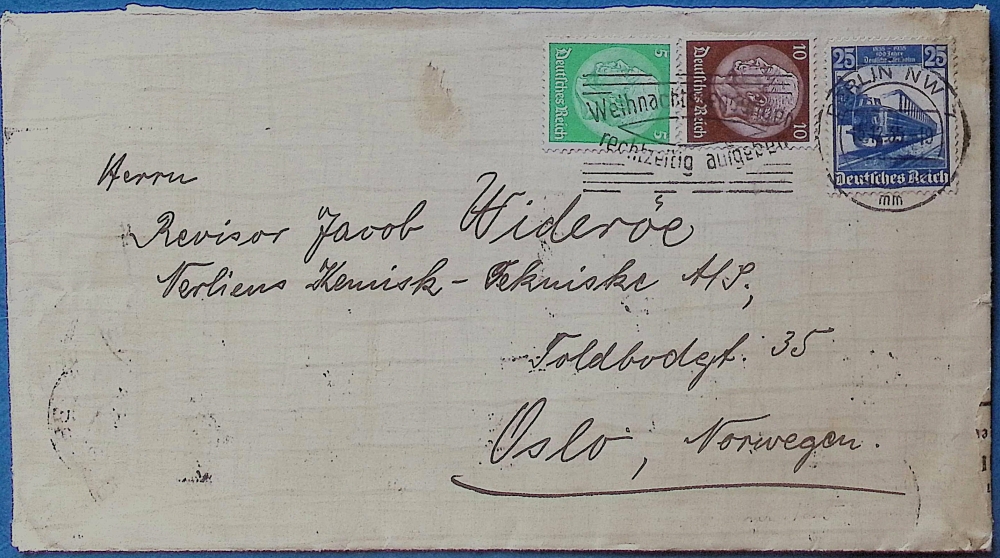 5
Deutsches Reich
5
10
Deutsches Reich
10
25 1835-1935 25
100 Jahre
Deutsche
Deutsches Reich
BERLIN NW 7
mm
rechtzeitig aufgeben
Herrn
Revisor Jacob Wideröe
Nerliens Kemisk-Tekniske A/S,
Toldbodgt. 35
Oslo, Norwegen.